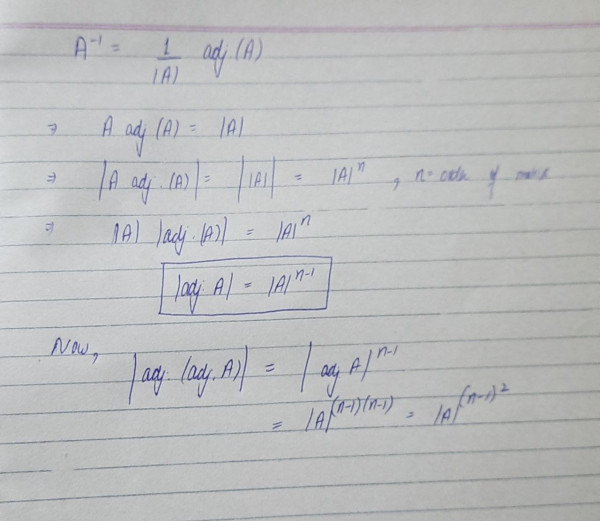 A⁻¹ = 1/|A| adj (A)
⇒ A adj (A) = |A|
⇒ |A adj. (A)| = ||A|| = |A|ⁿ , n = order of
⇒ |A| |adj. (A)| = |A|ⁿ
|adj. A| = |A|ⁿ⁻¹
Now,
|adj. (adj. A)| = |adj A|ⁿ⁻¹
= |A|⁽ⁿ⁻¹⁾⁽ⁿ⁻¹⁾ = |A|^(n-1)²